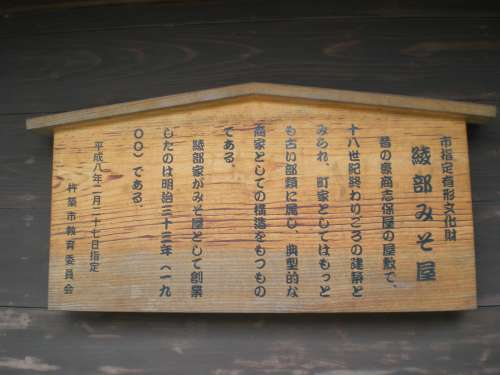 市指定有形文化財
綾部みそ屋
昔の豪商志保屋の屋敷で、
十八世紀終わりごろの建築と
みられ、町家としてはもっと
も古い部類に属し、典型的な
商家としての構造をもつもの
である。
綾部家がみそ屋として創業
したのは明治三十三年(一九
〇〇)である。
平成八年二月二十七日指定
杵築市教育委員会